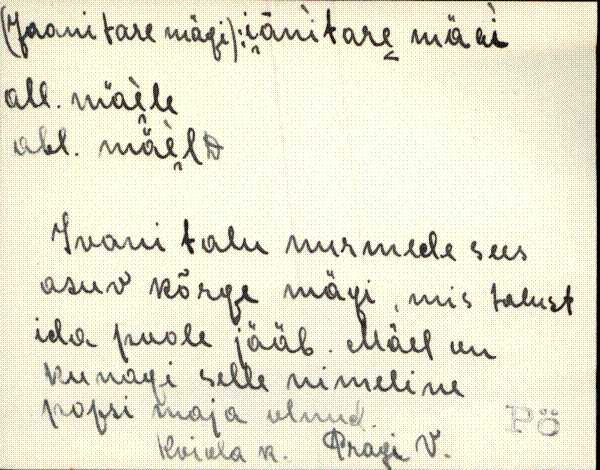 (Jaanitare mägi): i̭ānìtare̬ mägì
all. mäe̬le
abl. mäe̬lD
Ivani talu nurmede sees
asuv kõrge mägi, mis talust
ida poole jääb. Mäel on
kunagi selle nimeline
popsi maja olnud.
Koiola k. Pragi V.
Põ